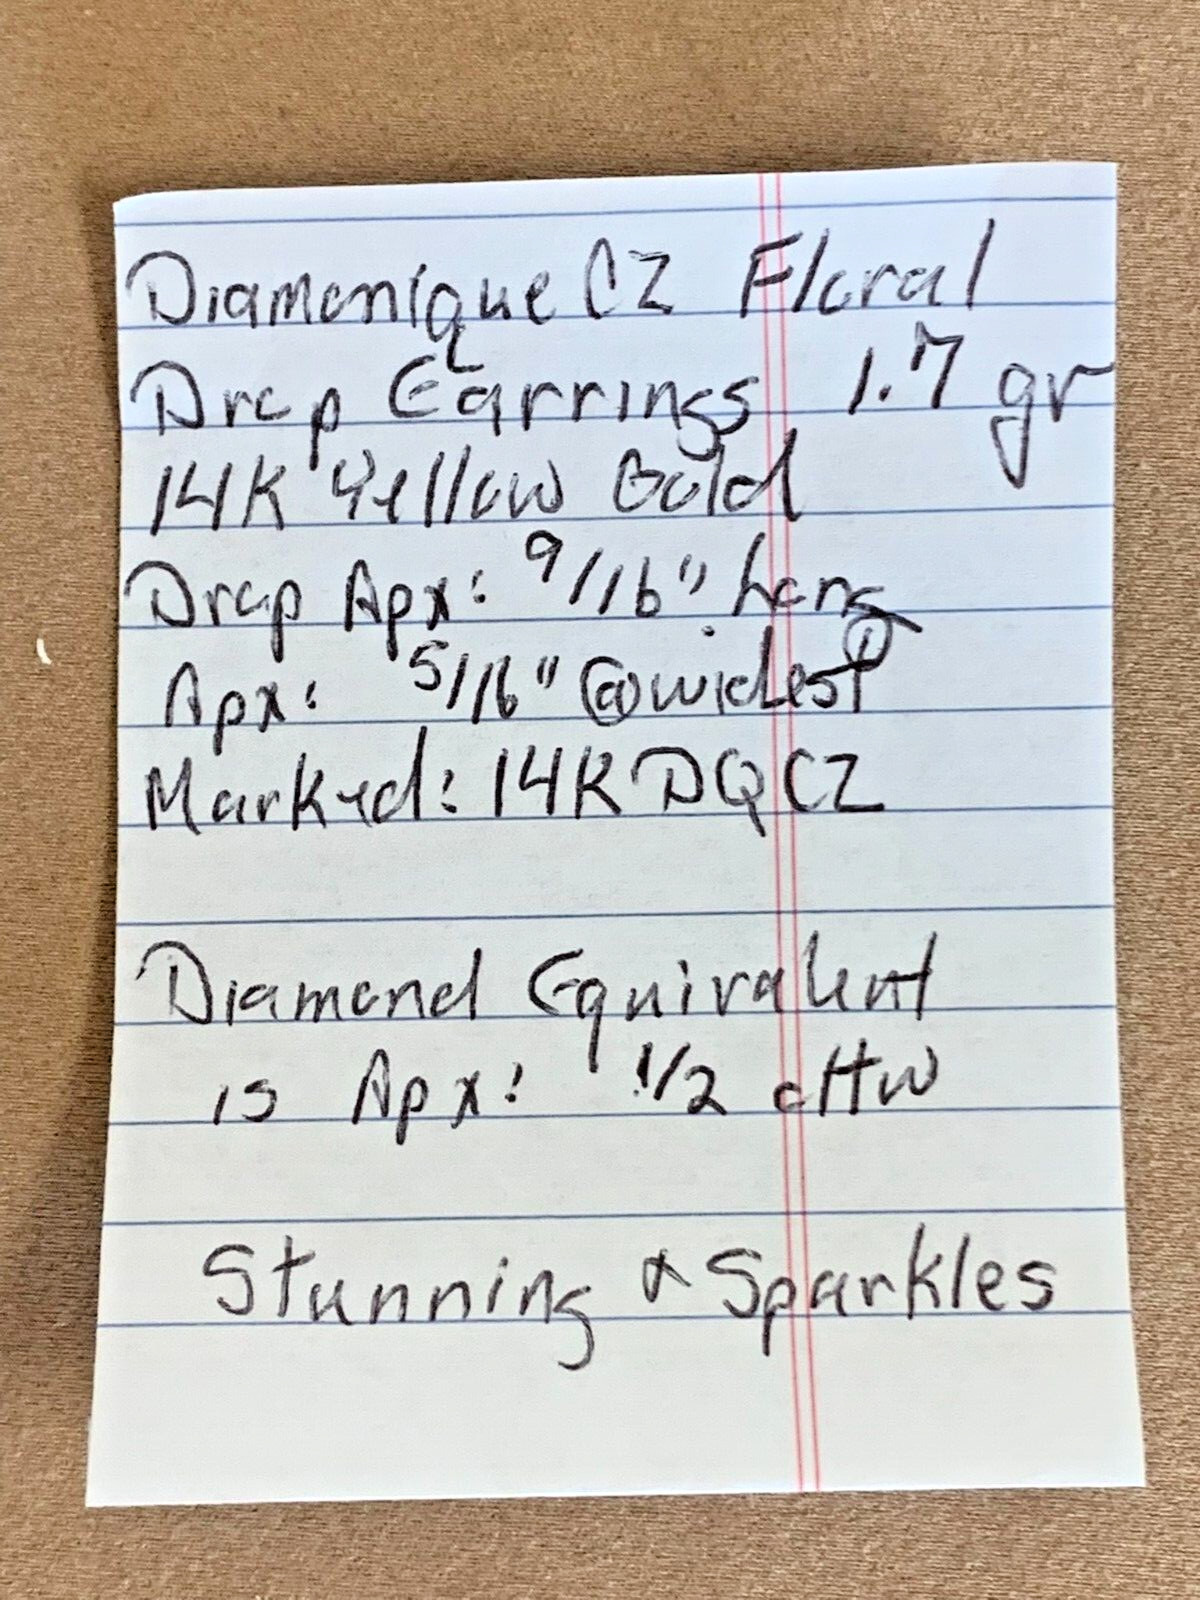 Diamonique CZ Floral
Drop Earrings 1.7 gr
14K Yellow Gold
Drop Apx: 9/16" Long
Apx: 5/16" @ widest
Marked: 14K DQCZ
Diamond Equivalent
is Apx: 1/2 cttw
Stunning & Sparkles